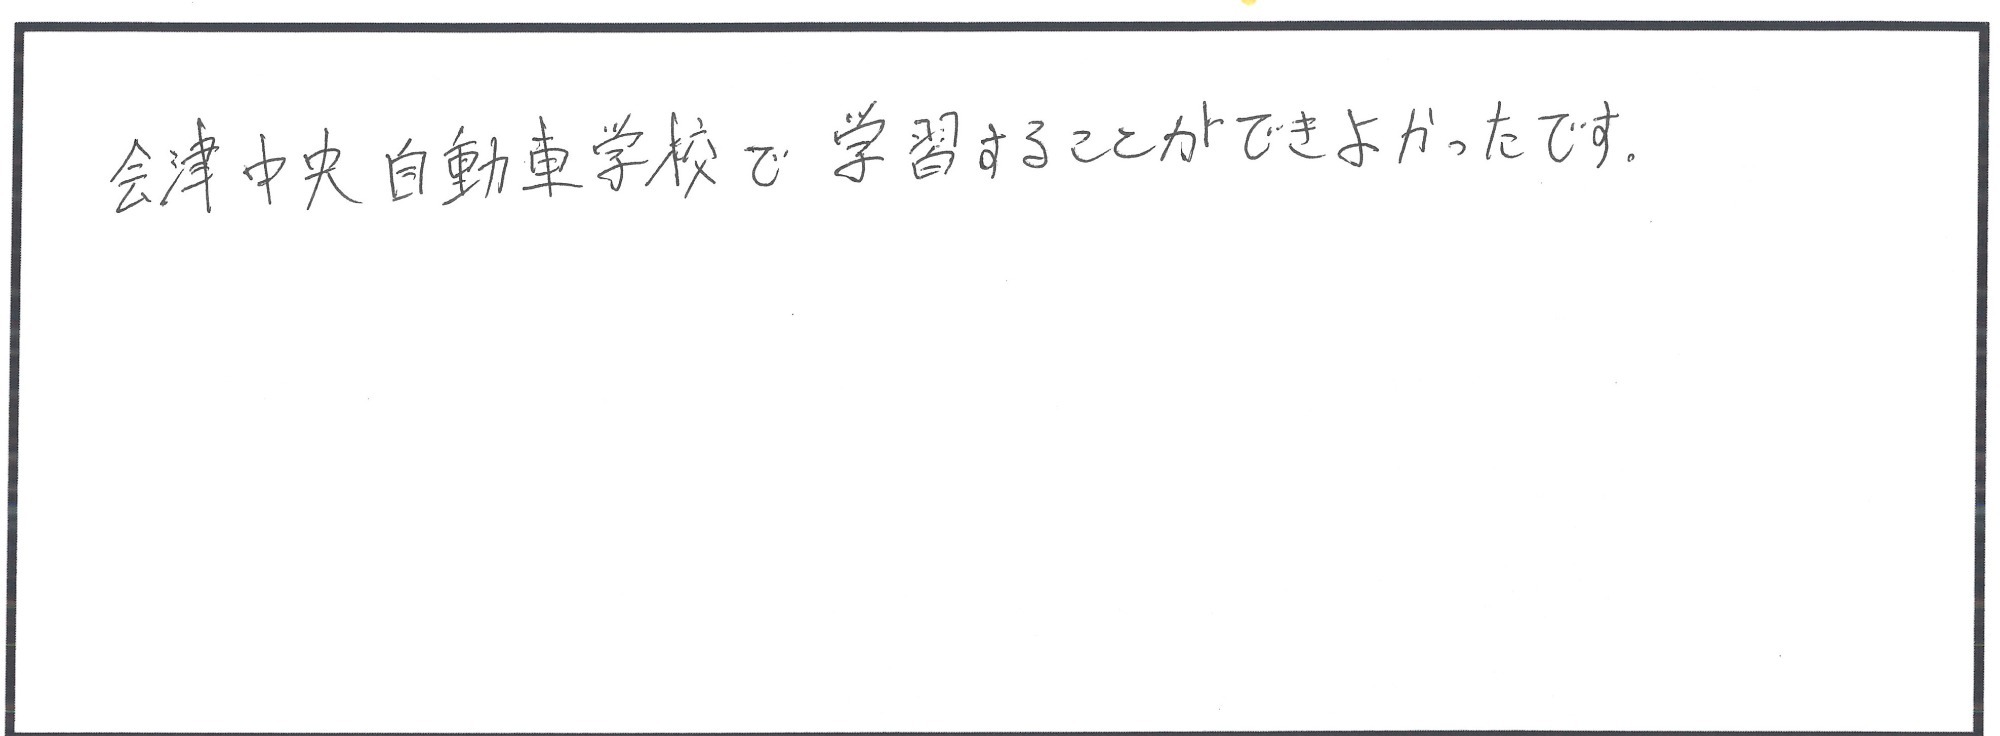 会津中央自動車学校で学習することができよかったです。